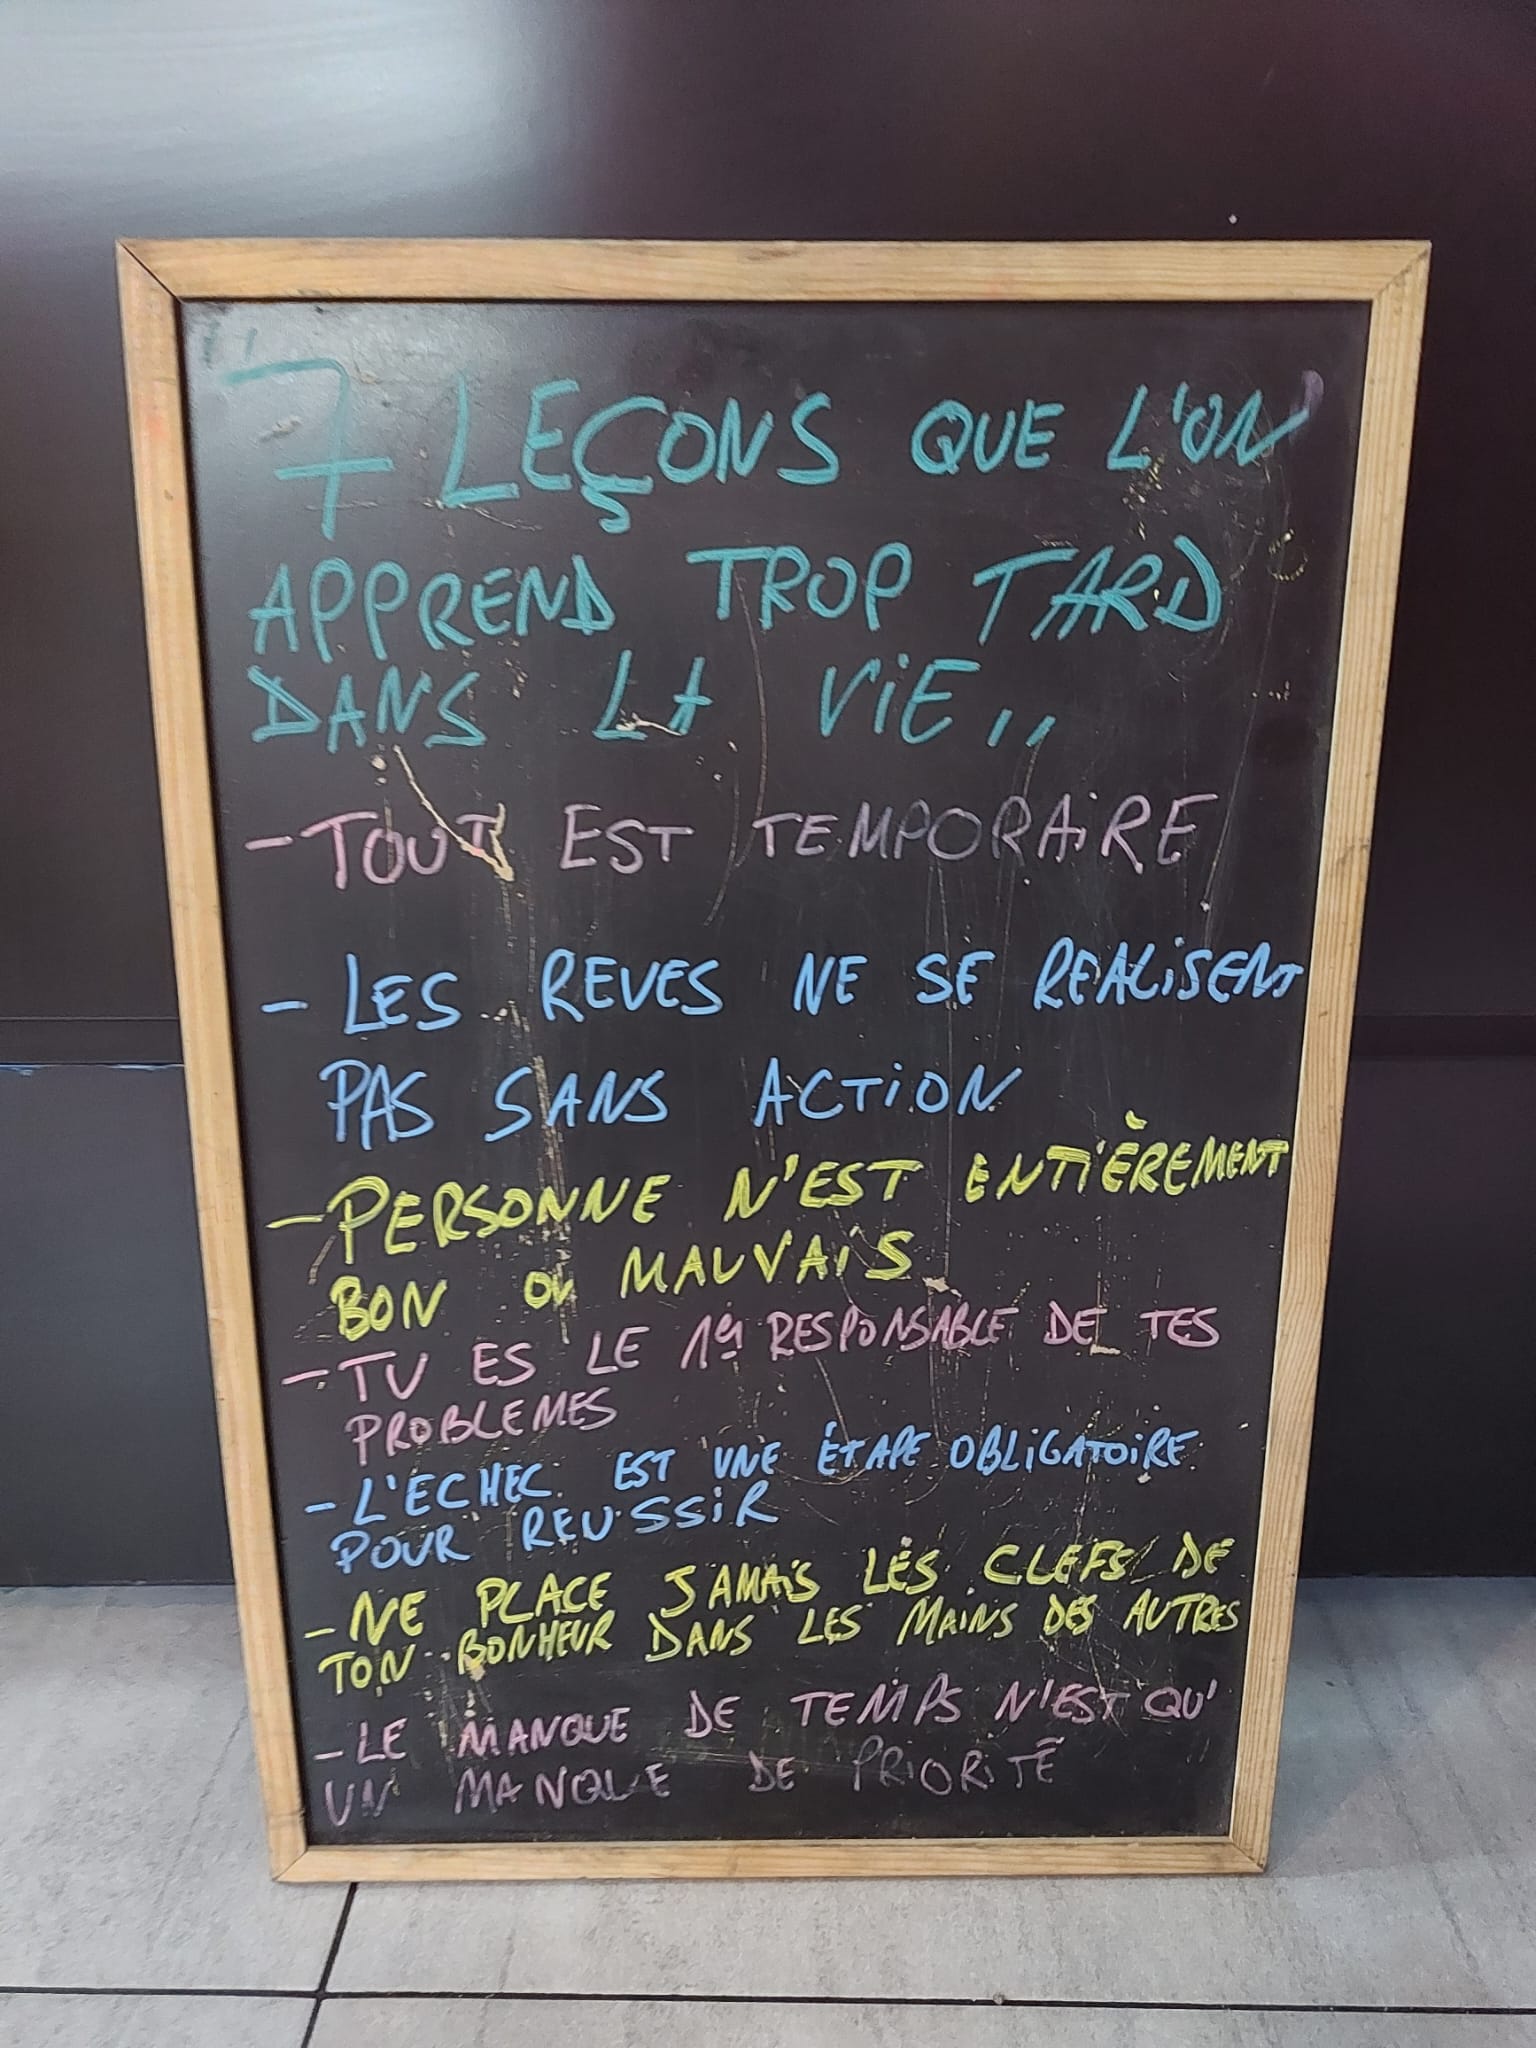 "7 LEÇONS QUE L'ON
APPREND TROP TARD
DANS LA ViE,,
- TOUT EST TEMPORAiRE
- LES REVES NE SE REALiSENT
PAS SANS ACTiON
- PERSONNE N'EST ENTiÈREMENT
BON OU MAUVAiS
- TU ES LE 1er RESPONSABLE DE TES
PROBLEMES
- L'ECHEC EST UNE ÉTAPE OBLiGATOiRE
POUR REUSSiR
- NE PLACE JAMAiS LES CLEFS DE
TON BONHEUR DANS LES MAiNS DES AUTRES
- LE MANQUE DE TEMPS N'EST QU'
UN MANQUE DE PRiORiTÉ